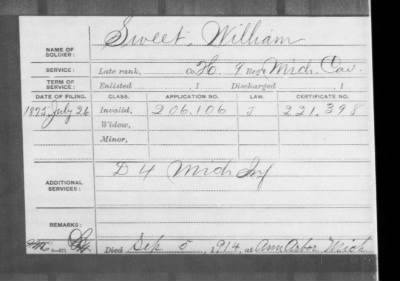 Sweet, William
NAME OF SOLDIER:
SERVICE: Late rank, Co. H. 9 Reg't Mich. Cav.
TERM OF SERVICE: Enlisted 1 Discharged 1
DATE OF FILING. CLASS. APPLICATION NO. LAW. CERTIFICATE NO.
1875, July 26 Invalid, 206.106 221.398
Widow,
Minor,
ADDITIONAL SERVICES: D 4 Mich Inf
REMARKS:
Died Sep 5, 1914, at Ann Arbor Mich